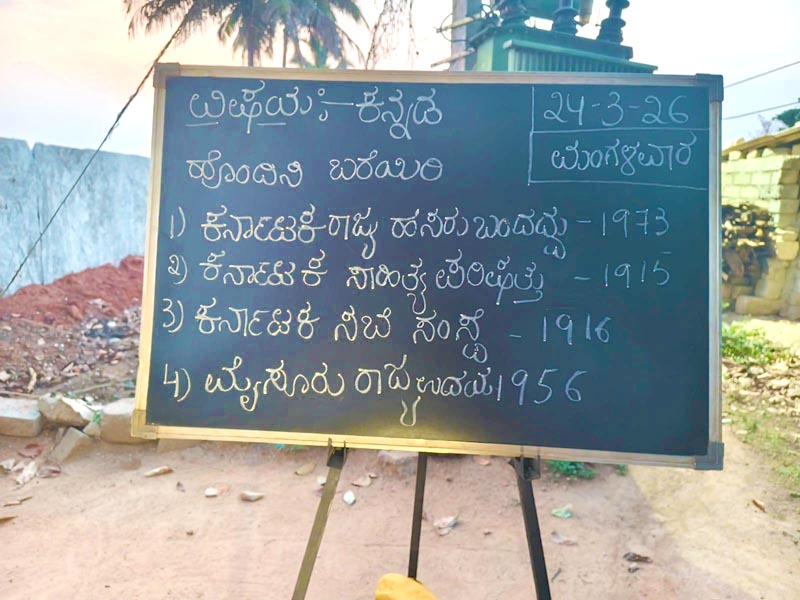 ವಿಷಯ :- ಕನ್ನಡ
24-3-26
ಮಂಗಳವಾರ
ಹೊಂದಿಸಿ ಬರೆಯಿರಿ
1) ಕರ್ನಾಟಕ ರಾಜ್ಯ ಹೆಸರು ಬಂದದ್ದು - 1973
2) ಕರ್ನಾಟಕ ಸಾಹಿತ್ಯ ಪರಿಷತ್ತು - 1915
3) ಕರ್ನಾಟಕ ಸಂಸ್ಥೆ - 1916
4) ಮೈಸೂರು ರಾಜ್ಯ ಉದಯ 1956